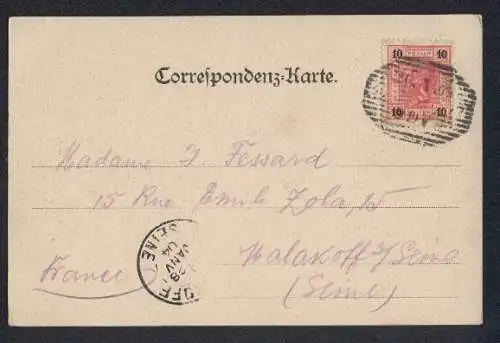 10 10
Correspondenz-Karte.
10 10
Madame J. Fessard
15 Rue Emile Zola, 15
Malakoff s/ Seine
France
(Seine)
SEINE
28
JANV
04
OFF